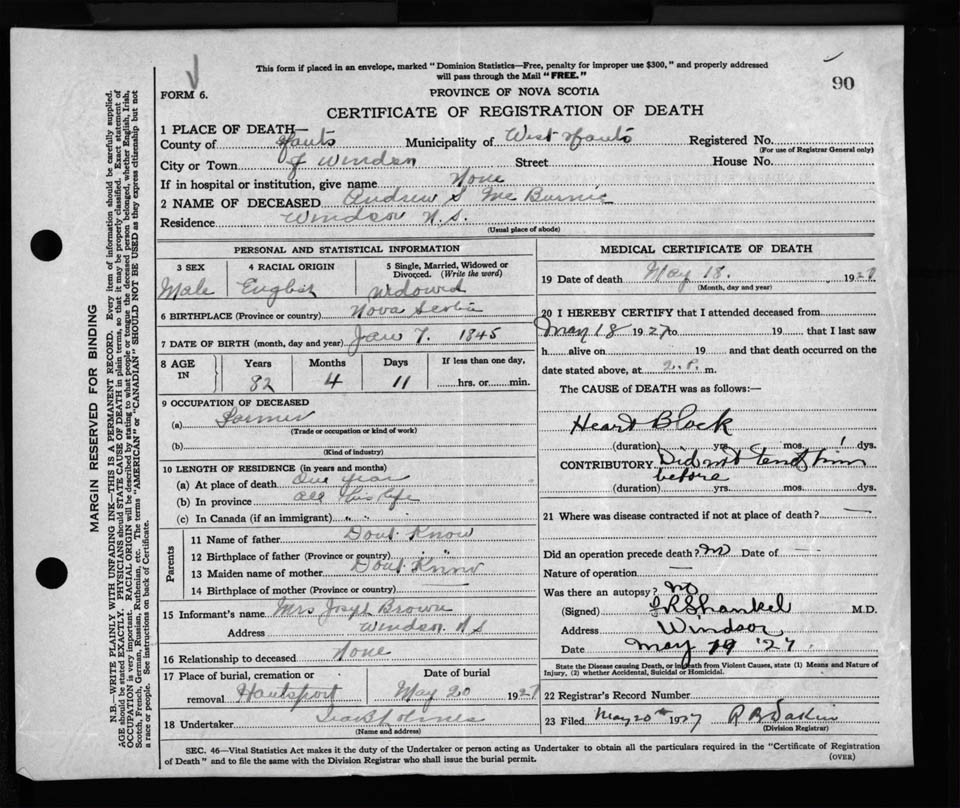 This form if placed in an envelope, marked "Dominion Statistics—Free, penalty for improper use $300," and properly addressed
will pass through the Mail "FREE."
90
FORM 6.
PROVINCE OF NOVA SCOTIA
CERTIFICATE OF REGISTRATION OF DEATH
MARGIN RESERVED FOR BINDING
N.B.—WRITE PLAINLY WITH UNFADING INK—THIS IS A PERMANENT RECORD. Every item of information should be carefully supplied.
AGE should be stated EXACTLY. PHYSICIANS should STATE CAUSE OF DEATH in plain terms, so that it may be properly classified. Exact statement of
OCCUPATION is very important. RACIAL ORIGIN will be described by stating to what people or tongue the deceased person belonged, whether English, Irish,
Scotch, French, German, Russian, Ruthenian, etc. The terms "AMERICAN" or "CANADIAN" SHOULD NOT BE USED as they express citizenship but not
a race or people. See instructions on back of Certificate.
1 PLACE OF DEATH—
County of Hants Municipality of West Hants Registered No.
(For use of Registrar General only)
City or Town of Windsor Street House No.
If in hospital or institution, give name None
2 NAME OF DECEASED Andrew S McBurnie
Residence Windsor N.S.
(Usual place of abode)
PERSONAL AND STATISTICAL INFORMATION
3 SEX 4 RACIAL ORIGIN 5 Single, Married, Widowed or Divorced. (Write the word)
Male English Widowed
6 BIRTHPLACE (Province or country) Nova Scotia
7 DATE OF BIRTH (month, day and year) Jan 7. 1845
8 AGE IN Years Months Days If less than one day,
82 4 11 hrs. or min.
9 OCCUPATION OF DECEASED
(a) Farmer
(Trade or occupation or kind of work)
(b)
(Kind of industry)
10 LENGTH OF RESIDENCE (in years and months)
(a) At place of death One year
(b) In province all his life
(c) In Canada (if an immigrant) " "
Parents
11 Name of father Dont Know
12 Birthplace of father (Province or country) " "
13 Maiden name of mother Dont Know
14 Birthplace of mother (Province or country) —
15 Informant's name Mrs Joseph Brown
Address Windsor N S
16 Relationship to deceased None
17 Place of burial, cremation or Date of burial
removal Hantsport May 20 1927
18 Undertaker Holmes
(Name and address)
MEDICAL CERTIFICATE OF DEATH
19 Date of death May 18. 1927
(Month, day and year)
20 I HEREBY CERTIFY that I attended deceased from
May 18 1927 to 19 that I last saw
h alive on 19 and that death occurred on the
date stated above, at 2.P. m.
The CAUSE of DEATH was as follows:—
Heart Block
(duration) yrs. mos. 1 dys.
CONTRIBUTORY Did not tend him
before
(duration) yrs. mos. dys.
21 Where was disease contracted if not at place of death? —
Did an operation precede death? no Date of —
Nature of operation —
Was there an autopsy? no
(Signed) Shankel M.D.
Address Windsor
Date May 19 '27
State the Disease causing Death, or in death from Violent Causes, state (1) Means and Nature of
Injury, (2) whether Accidental, Suicidal or Homicidal.
22 Registrar's Record Number
23 Filed May 20th 1927 R B Dakin
(Division Registrar)
SEC. 46—Vital Statistics Act makes it the duty of the Undertaker or person acting as Undertaker to obtain all the particulars required in the "Certificate of Registration
of Death" and to file the same with the Division Registrar who shall issue the burial permit.
(OVER)